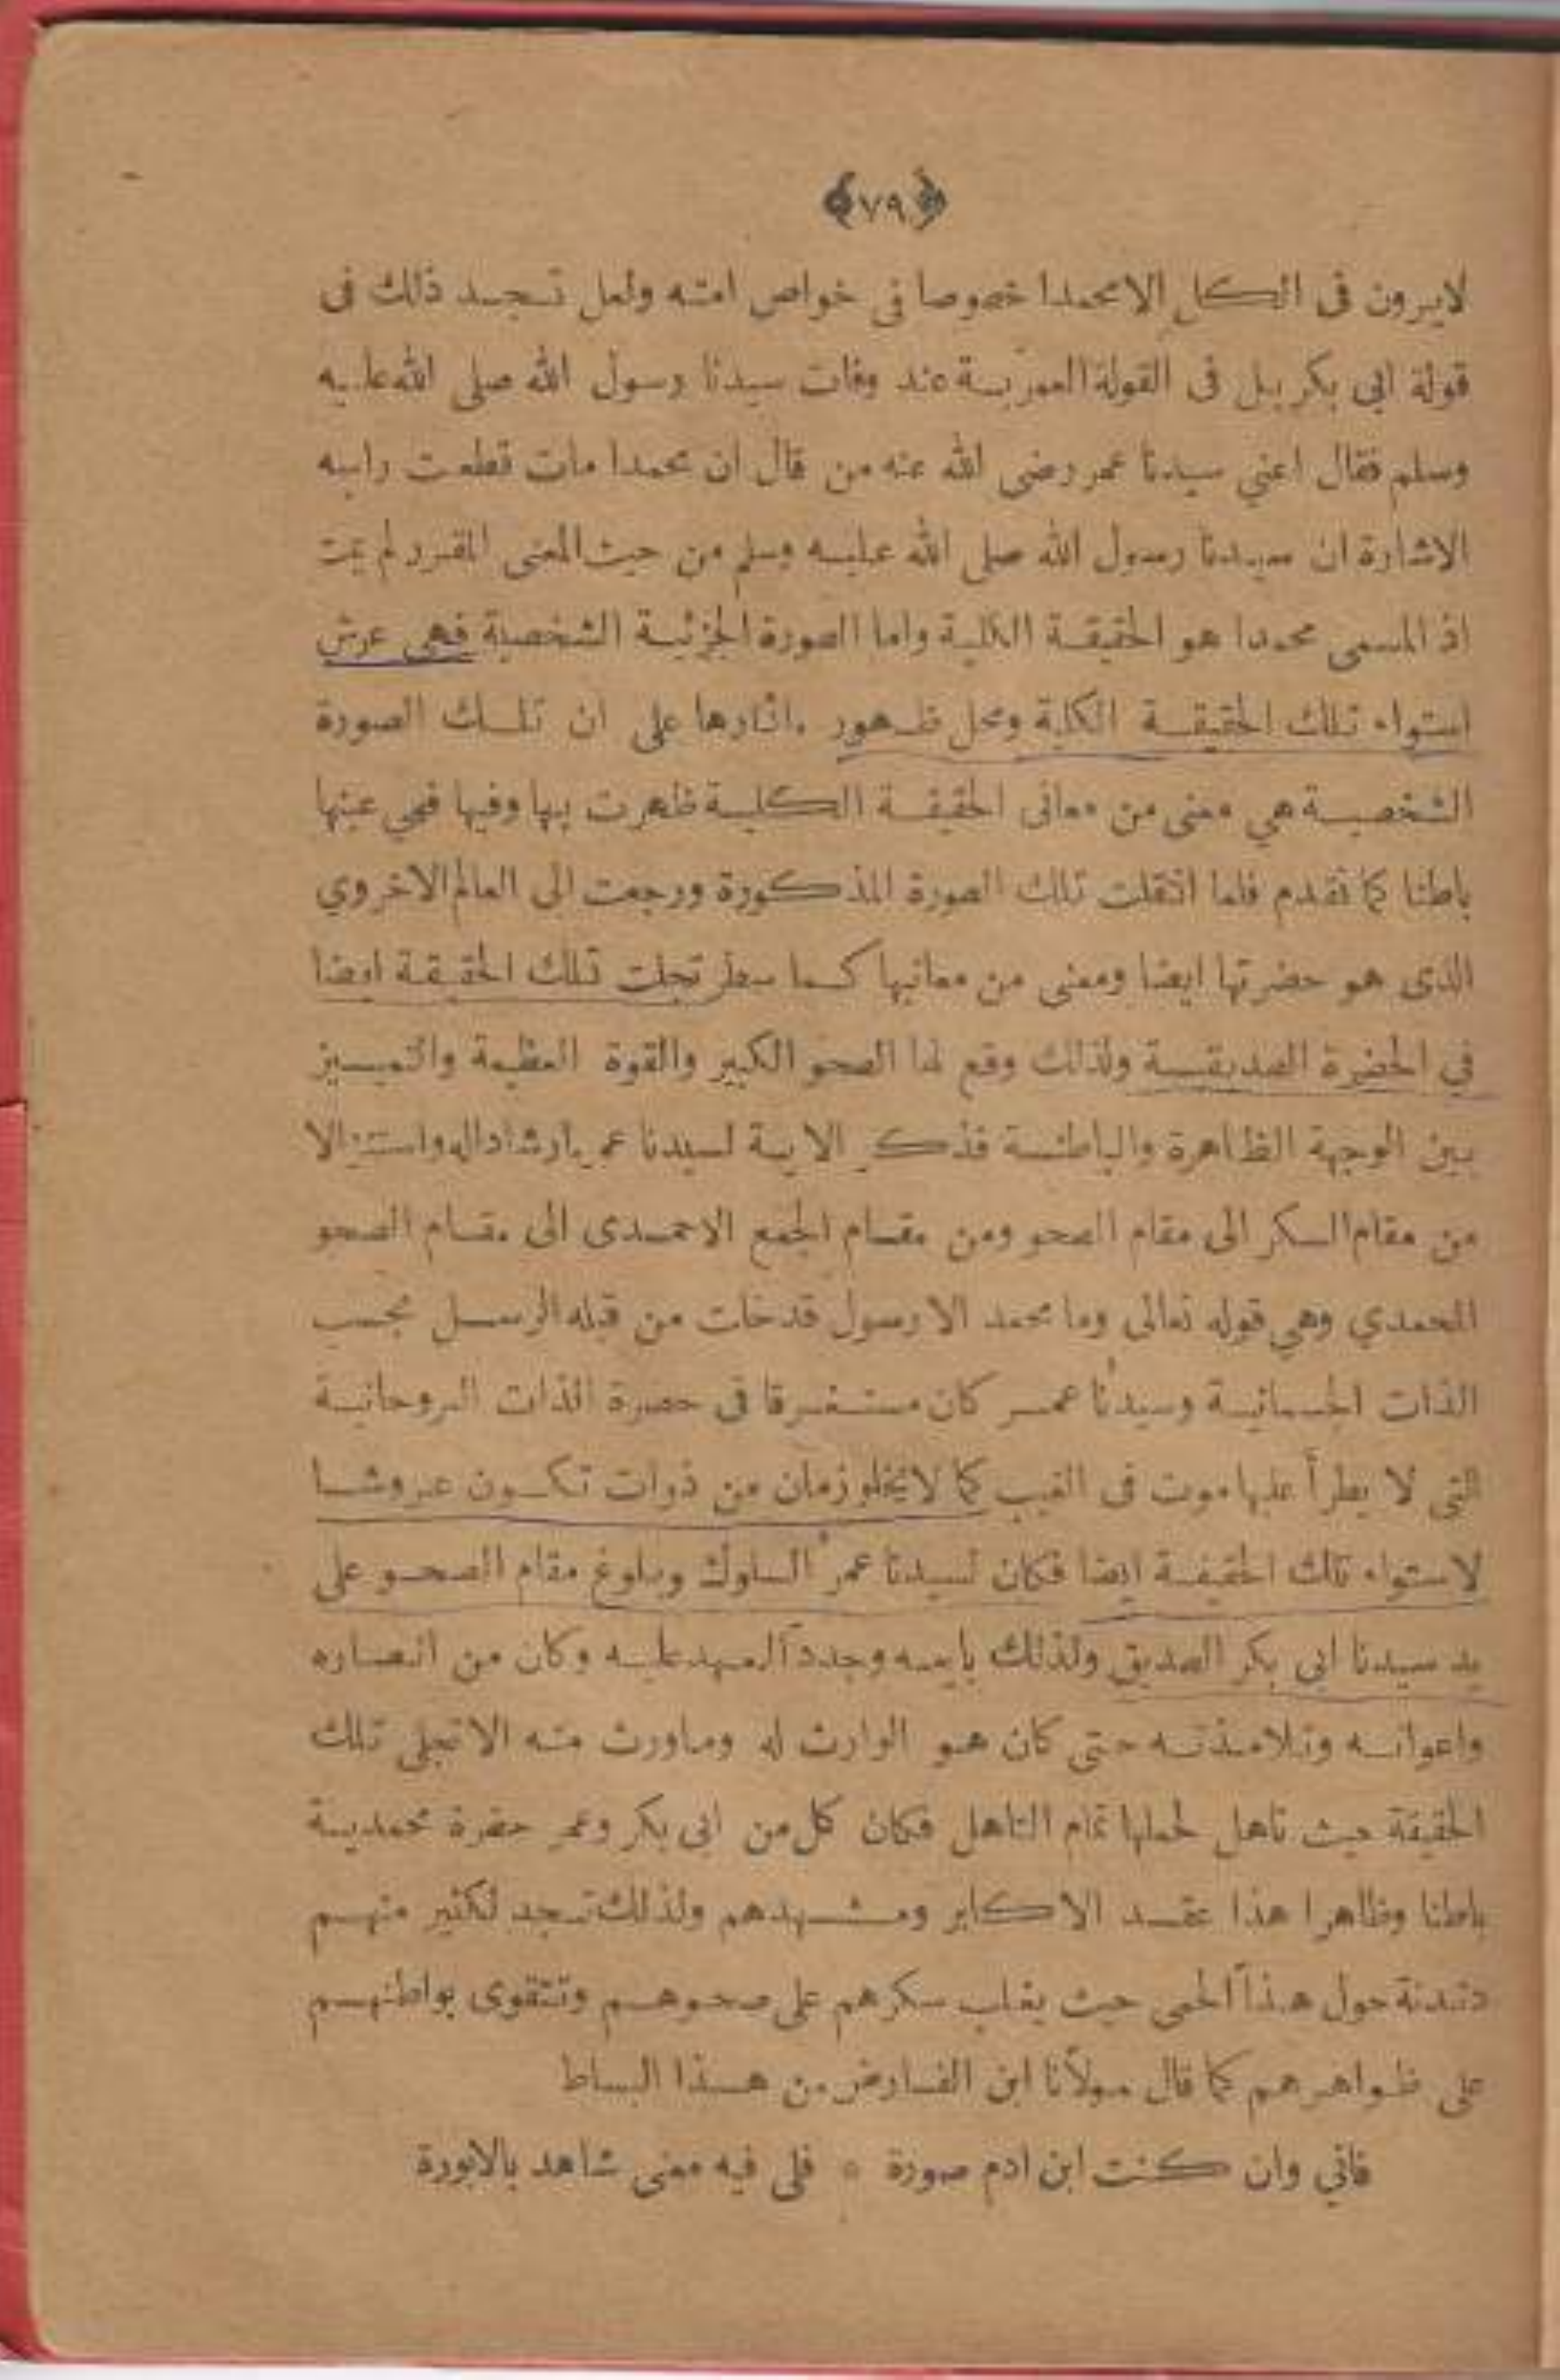 ﴿٧٩﴾
لايرون فى الكل الامحمدا خصوصا في خواص امته ولعل تجد ذلك فى
قولة ابي بكر بل فى القولة العمرية عند وفات سيدنا رسول الله صلى الله عليه
وسلم فقال اعني سيدنا عمر رضى الله عنه من قال ان محمدا مات قطعت راسه
الاشارة ان سيدنا رسول الله صلى الله عليه وسلم من حيث المعنى المقرر لم يمت
اذ المسمى محمدا هو الحقيقة الكلية واما الصورة الجزئية الشخصية فهى عرش
استواء تلك الحقيقة الكلية ومحل ظهور ءاثارها على ان تلك الصورة
الشخصية هي معنى من معانى الحقيقة الكلية ظهرت بها وفيها فهي عينها
باطنا كما تقدم فلما انتقلت تلك الصورة المذكورة ورجعت الى العالم الاخروي
الذى هو حضرتها ايضا ومعنى من معانيها كما سطر تجلت تلك الحقيقة ايضا
في الحضرة الصديقية ولذلك وقع لها الصحو الكبير والقوة العظيمة والتمييز
بين الوجهة الظاهرة والباطنة فذكر الاية لسيدنا عمر ارشادا له واستنزالا
من مقام السكر الى مقام الصحو ومن مقام الجمع الاحمدى الى مقام الصحو
المحمدي وهي قوله تعالى وما محمد الا رسول قد خلت من قبله الرسل بحسب
الذات الجسمانية وسيدنا عمر كان مستغرقا في حضرة الذات الروحانية
التى لا يطرأ عليها موت فى الغيب كما لايخلو زمان من ذوات تكون عروشا
لاستواء تلك الحقيقة ايضا فكان لسيدنا عمر السلوك وبلوغ مقام الصحو على
يد سيدنا ابى بكر الصديق ولذلك بايعه وجدد العهد عليه وكان من انصاره
واعوانه وتلامذته حتى كان هو الوارث له وماورث منه الاتجلى تلك
الحقيقة حيث تاهل لحملها تمام التاهل فكان كل من ابى بكر وعمر حضرة محمدية
باطنا وظاهرا هذا عقد الاكابر ومشهدهم ولذلك تجد لكثير منهم
دندنة حول هذا الحمى حيث يغلب سكرهم على صحوهم وتتقوى بواطنهم
على ظواهرهم كما قال مولانا ابن الفارض من هذا البساط
فاني وان كنت ابن ادم صورة * فلى فيه معنى شاهد بالابورة